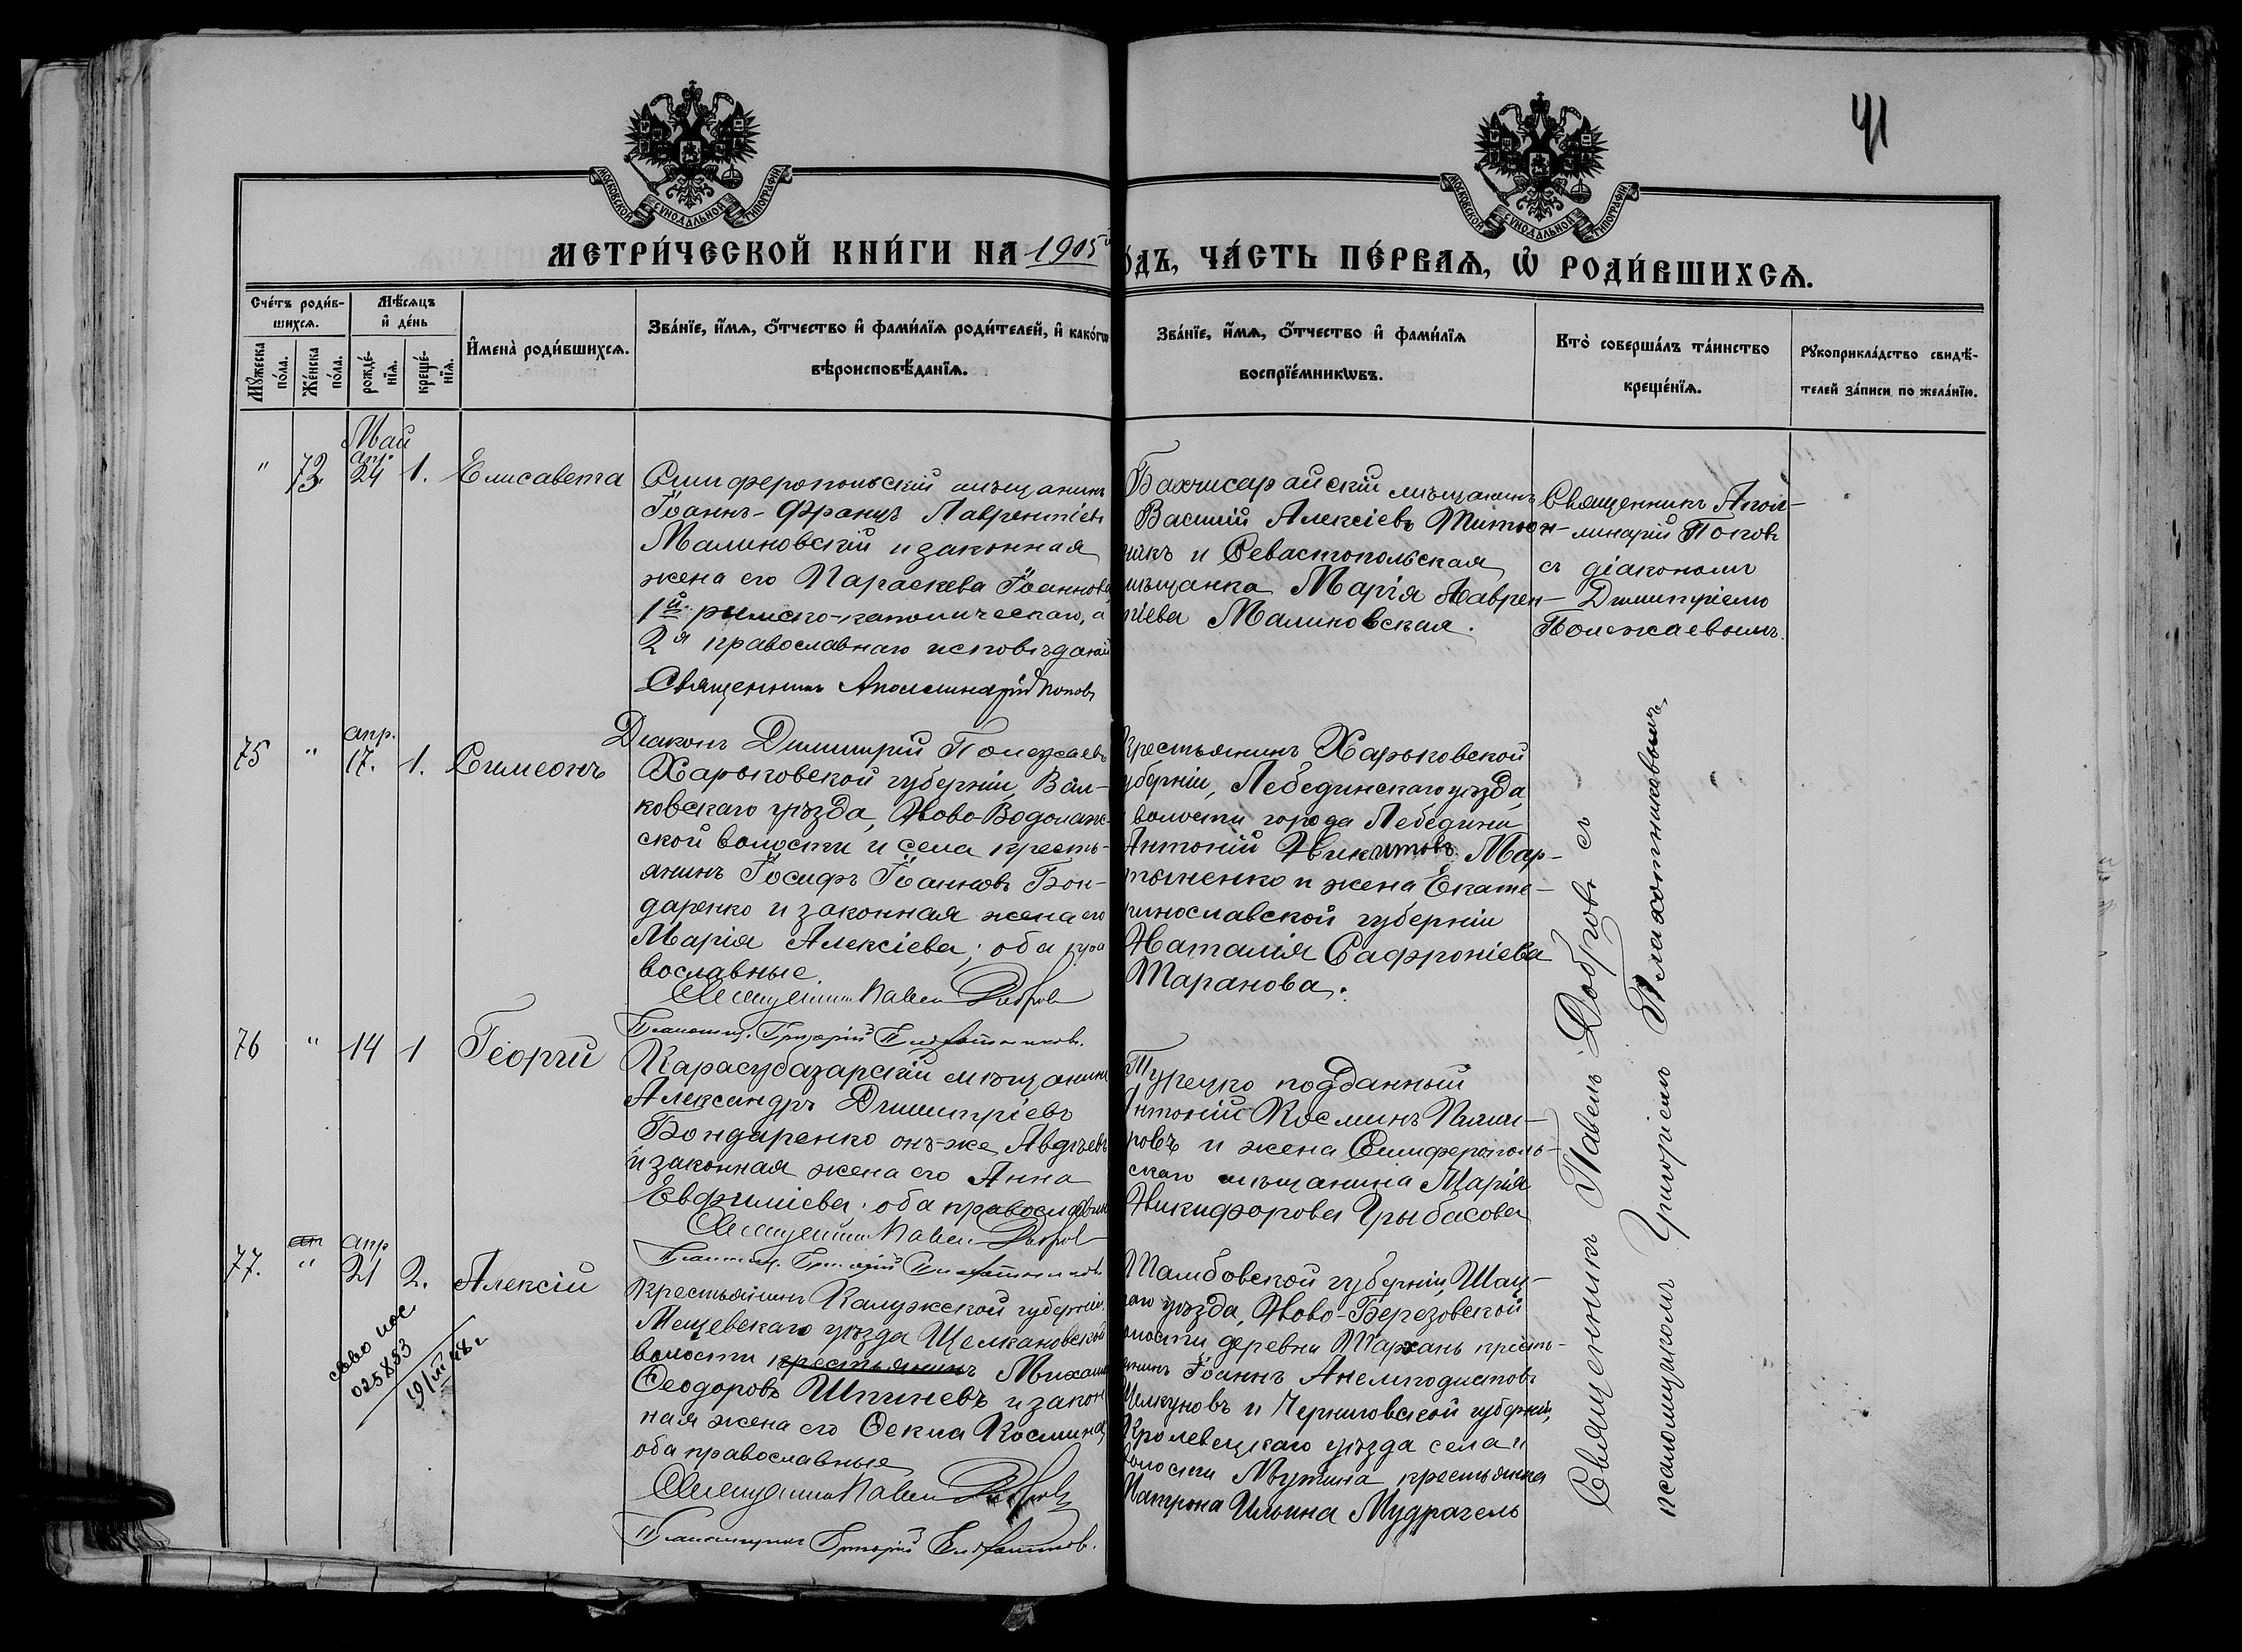 41
МОСКОВСКОЙ СѴНОДАЛЬНОЙ ТИПОГРАФІИ
МОСКОВСКОЙ СѴНОДАЛЬНОЙ ТИПОГРАФІИ
МЕТРИ́ЧЕСКОЙ КНИ́ГИ НА 1905й
о́дъ, ЧА́СТЬ ПЕ́РВАѦ, Ѡ҆ РОДИ́ВШИХСѦ.
Счетъ роди́в-
шихсѧ.
Мѣ́сѧцъ
и҆ де́нь
Мꙋ́жеска
по́ла.
Же́нска
по́ла.
рожде́-
нїѧ.
креще́-
нїѧ.
И҆мена̀ роди́вшихсѧ.
Зва́нїе, и҆́мѧ, ѻ҆́тчество и҆ фами́лїѧ роди́телей, и҆ како́гѡ
вѣроисповѣ́данїѧ.
Зва́нїе, и҆́мѧ, ѻ҆́тчество и҆ фами́лїѧ
воспрїе́мникѡвъ.
Кто̀ соверша́лъ та́инство
креще́нїѧ.
Рꙋкоприкла́дство свидѣ́-
телей за́писи по жела́нїю.
Май
апр.
" 73 24 1. Елисавета
Симферопольскій мѣщанинъ
Іоаннъ-Францъ Лаврентіевъ
Малиновскій и законная
жена его Параскева Іоаннова
1й римско-католическаго, а
2я православнаго исповѣданій
Священникъ Аполлинарій Поповъ
Бахчисарайскій мѣщанинъ
Василій Алексіевъ Титюн-
никъ и Севастопольская
мѣщанка Марія Лаврен-
тіева Малиновская.
Священникъ Апол-
линарій Поповъ
съ діакономъ
Димитріемъ
Полежаевымъ.
Діаконъ Димитрій Полежаевъ
апр.
75 " 17. 1. Симеонъ
Харьковской губерніи, Вал-
ковскаго уѣзда, Ново-Водолаж-
ской волости и села кресть-
янинъ Іосифъ Іоанновъ Бон-
даренко и законная жена его
Марія Алексіева; оба пра
вославные
Священникъ Павелъ Добровъ
Псаломщ. Григорій Плахотниковъ.
Крестьянинъ Харьковской
губерніи, Лебединскаго уѣзда,
волости города Лебедина
Антоній Никитовъ Мар-
тыненко и жена Екате-
ринославской губерніи
Наталія Сафроніева
Таранова.
76 " 14 1 Георгій
Карасубазарскій мѣщанинъ
Александръ Димитріевъ
Бондаренко онъ-же Авдѣевъ
и законная жена его Анна
Евфиміева; оба православные
Священникъ Павелъ Добровъ
Псаломщ. Григорій Плахотниковъ
Турецко подданный
Антоній Косминъ
ровъ и жена Симферополь-
скаго мѣщанина Марія
Никифорова Грыбасова
ап апр
77. " 21 2. Алексій
свво
025853
19/VII 48 г
Крестьянинъ Калужской губерніи,
Мещевскаго уѣзда Щелкановской
волости крестьянинъ Михаилъ
Ѳеодоровъ Шпиневъ и закон
ная жена его Ѳекла Космина,
оба православные
Священникъ Павелъ Добровъ
Псаломщикъ Григорій Плахотников.
Тамбовской губерніи, Шац-
каго уѣзда, Ново-Березовской
волости деревни Тархань кресть-
янинъ Іоаннъ Анемподистовъ
Щелкуновъ и Черниговской губерніи,
Кролевецкаго уѣзда села и
волости Мутина крестьянка
Матрона Ильина Мудрагель
Священникъ Павелъ Добровъ съ
псаломщикомъ Григоріемъ Плахотниковымъ